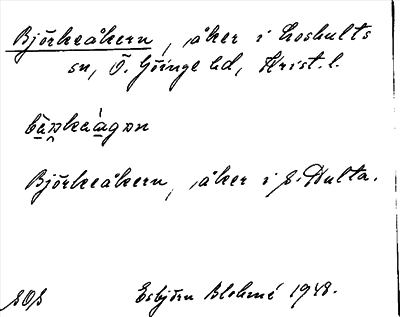 Björkeåkern, åker i Loshults
sn, Ö. Göinge hd, Krist. l.
Björkeåkern, åker i S. Hulta.
SOS Esbjörn Blohmé 1948.